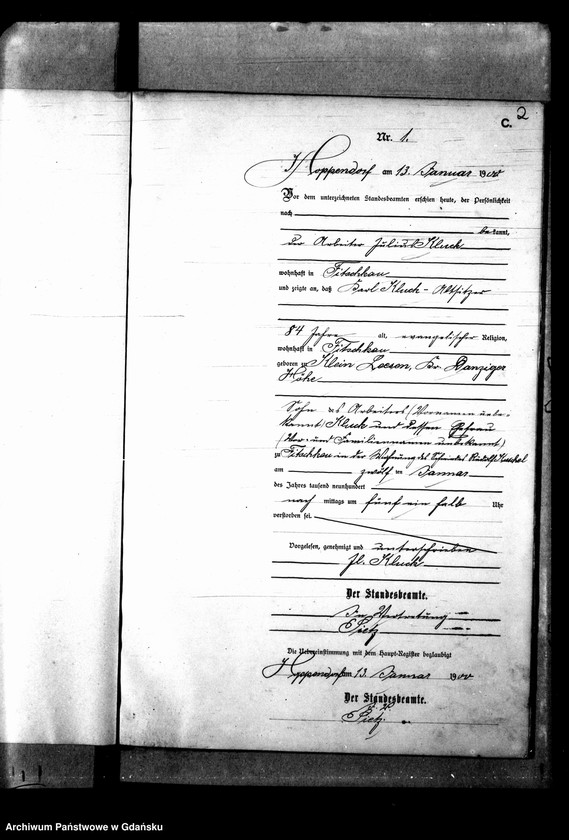 C. 2
Nr. 1.
Hoppendorf am 13. Januar 1900
Vor dem unterzeichneten Standesbeamten erschien heute, der Persönlichkeit
nach
bekannt,
der Arbeiter Julius Kluck
wohnhaft in Fitschkau
und zeigte an, daß Karl Kluck - Altsitzer
84 Jahre alt, evangelischer Religion,
wohnhaft in Fitschkau
geboren zu Klein Loesen, Kr. Danziger
Höhe
Sohn des Arbeiters (Vornamen unbe-
kannt) Kluck und dessen Ehefrau
(Vor- und Familiennamen unbekannt)
zu Fitschkau in der Wohnung des Schmiedes Rudolf
am zwölften Januar
des Jahres tausend neunhundert
nach mittags um fünf ein halb Uhr
verstorben sei.
Vorgelesen, genehmigt und unterschrieben
Jl. Kluck
Der Standesbeamte.
In Vertretung
Pietz
Die Uebereinstimmung mit dem Haupt-Register beglaubigt
Hoppendorf am 13. Januar 1900
Der Standesbeamte.
I. V.
Pietz.
Archiwum Państwowe w Gdańsku